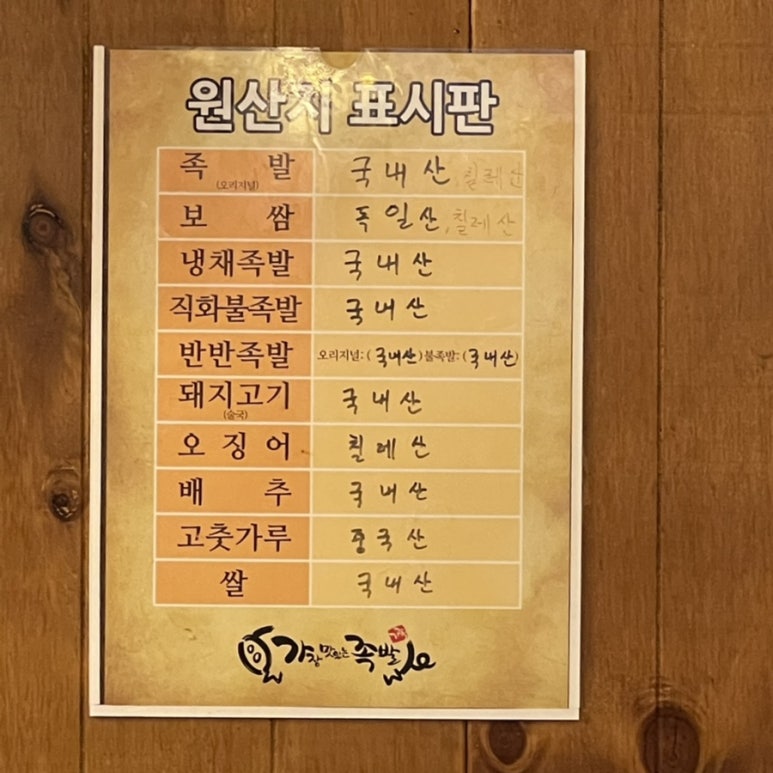 원산지 표시판
족 발 국내산, 칠레산
(오리지널)
보 쌈 독일산, 칠레산
냉채족발 국내산
직화불족발 국내산
반반족발 오리지널: (국내산) 불족발: (국내산)
돼지고기 국내산
(술국)
오 징 어 칠레산
배 추 국내산
고춧가루 중국산
쌀 국내산
가장 맛있는 족발